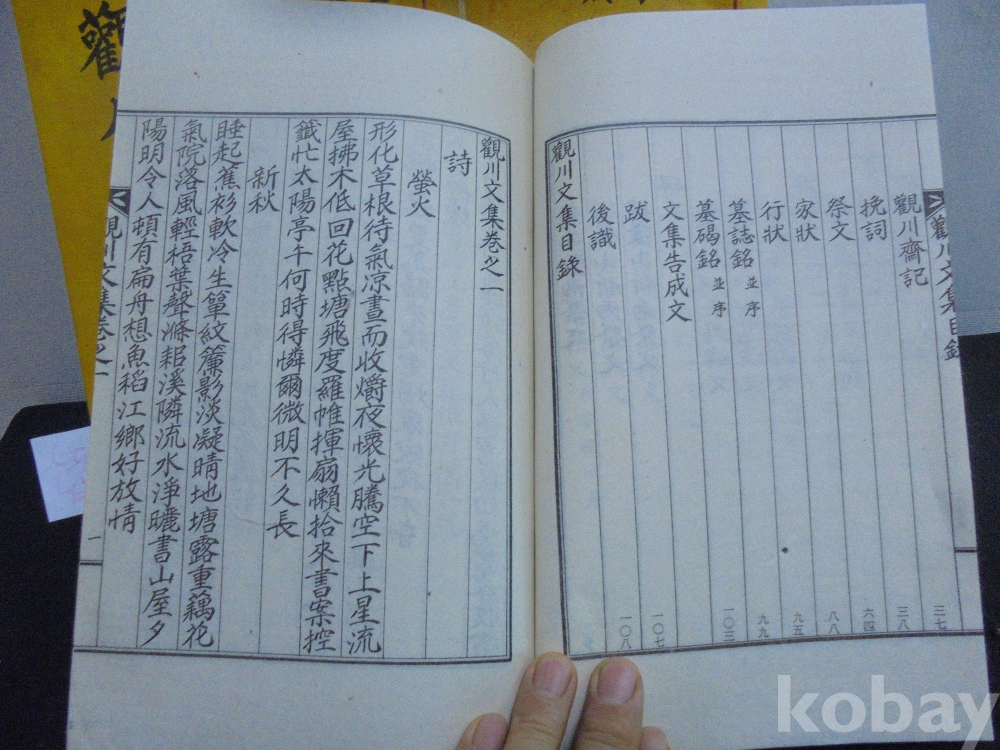 觀
觀川文集目錄
觀川齋記 三七
挽詞 三八
祭文 六四
家狀 八八
行狀 九五
墓誌銘 並序 九九
墓碣銘 並序 一〇三
文集告成文
跋 一〇七
後識 一〇八
觀川文集目錄
觀川文集卷之一
詩
螢火
形化草根待氣凉晝而收爝夜懷光騰空下上星流
屋拂木低回花點塘飛度羅帷揮扇懶拾來書案控
鑯忙太陽亭午何時得憐爾微明不久長
新秋
睡起蕉衫軟冷生簟紋簾影淡凝晴地塘露重藕花
氣院落風輕梧葉聲滌耜溪隣流水淨曬書山屋夕
陽明令人頓有扁舟想魚稻江鄉好放情
觀川文集卷之一
一
kobay